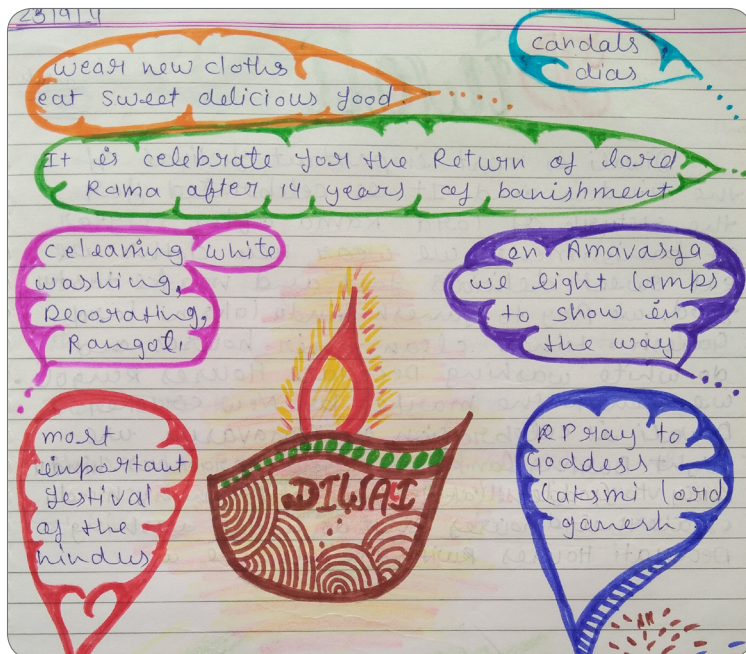 23/9/14
wear new cloths
eat sweet delicious food
candals
dias
It is celebrate for the Return of lord
Rama after 14 years of banishment
celeaning white
washing,
Decorating,
Rangoli
on Amavasya
we light lamps
to show in
the way
most
important
festival
of the
hindus
DIWAI
Pray to
Goddess
Laksmi lord
ganesh